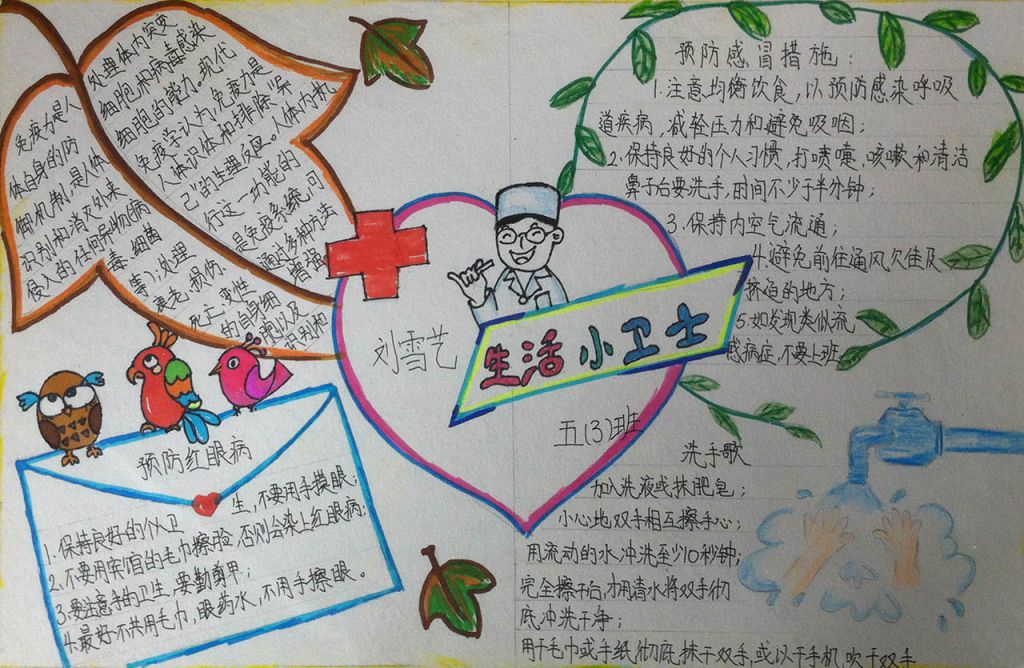 免疫力是人
体自身的防
御机制,是人体
识别和消灭外来
侵入的任何异物(病
毒、细菌
等);处理
衰老、损伤、
死亡、变性
的自身细
胞以及
识别和
处理体内突变
细胞和病毒感染
细胞的能力。现代
免疫学认为,免疫力是
人体识体和排除“异
己”的生理反应。人体内执
行这一功能的
是免疫系统,可
通过多种方法
增强
刘雪艺
生活小卫士
五(3)班
预防感冒措施:
1.注意均衡饮食,以预防感染呼吸
道疾病,减轻压力和避免吸咽;
2.保持良好的个人习惯,打喷嚏、咳嗽和清洁
鼻子后要洗手,时间不少于半分钟;
3.保持内空气流通;
4.避免前往通风欠佳及
挤逼的地方;
5.如发现类似流
感病症,不要上班
预防红眼病
1.保持良好的个人卫生,不要用手摸眼;
2.不要用宾馆的毛巾擦脸,否则会染上红眼病;
3.要注意手的卫生,要勤剪甲;
4.最好不共用毛巾,眼药水,不用手擦眼。
洗手歌
加入洗液或抹肥皂;
小心地双手相互擦手心;
用流动的水冲洗至少10秒钟;
完全擦干后,才用清水将双手彻
底冲洗干净;
用干毛巾或手纸彻底抹干双手,或以干手机吹干双手